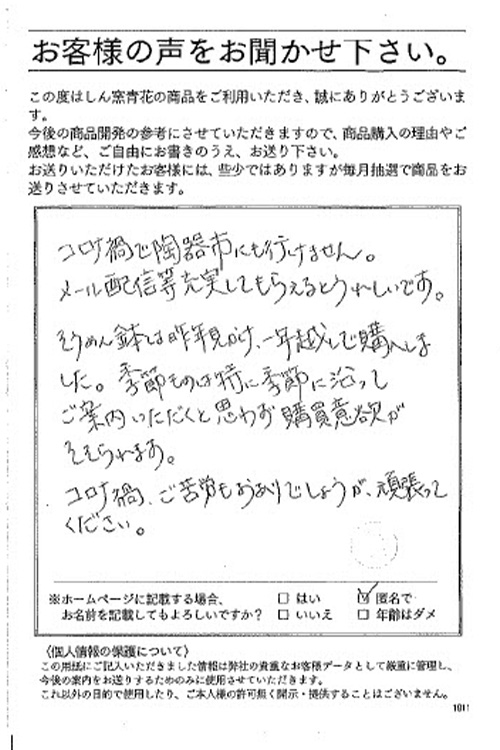 お客様の声をお聞かせ下さい。
この度はしん窯青花の商品をご利用いただき、誠にありがとうございま
す。
今後の商品開発の参考にさせていただきますので、商品購入の理由やご
感想など、ご自由にお書きのうえ、お送り下さい。
お送りいただけたお客様には、些少ではありますが毎月抽選で商品をお
送りさせていただきます。
コロナ禍で陶器市にも行けません。
メール配信等充実してもらえるとうれしいです。
そうめん鉢は昨年見かけ、一年越しで購入しま
した。季節ものは特に季節に沿って
ご案内いただくと思わず購買意欲が
そそられます。
コロナ禍、ご苦労もおありでしょうが、頑張って
ください。
※ホームページに記載する場合、 □ はい ☑ 匿名で
お名前を記載してもよろしいですか？ □ いいえ □ 年齢はダメ
〈個人情報の保護について〉
この用紙にご記入いただきました情報は弊社の貴重なお客様データとして厳重に管理し、
今後の案内をお送りするためのみに使用させていただきます。
これ以外の目的で使用したり、ご本人様の許可無く開示・提供することはございません。
1011